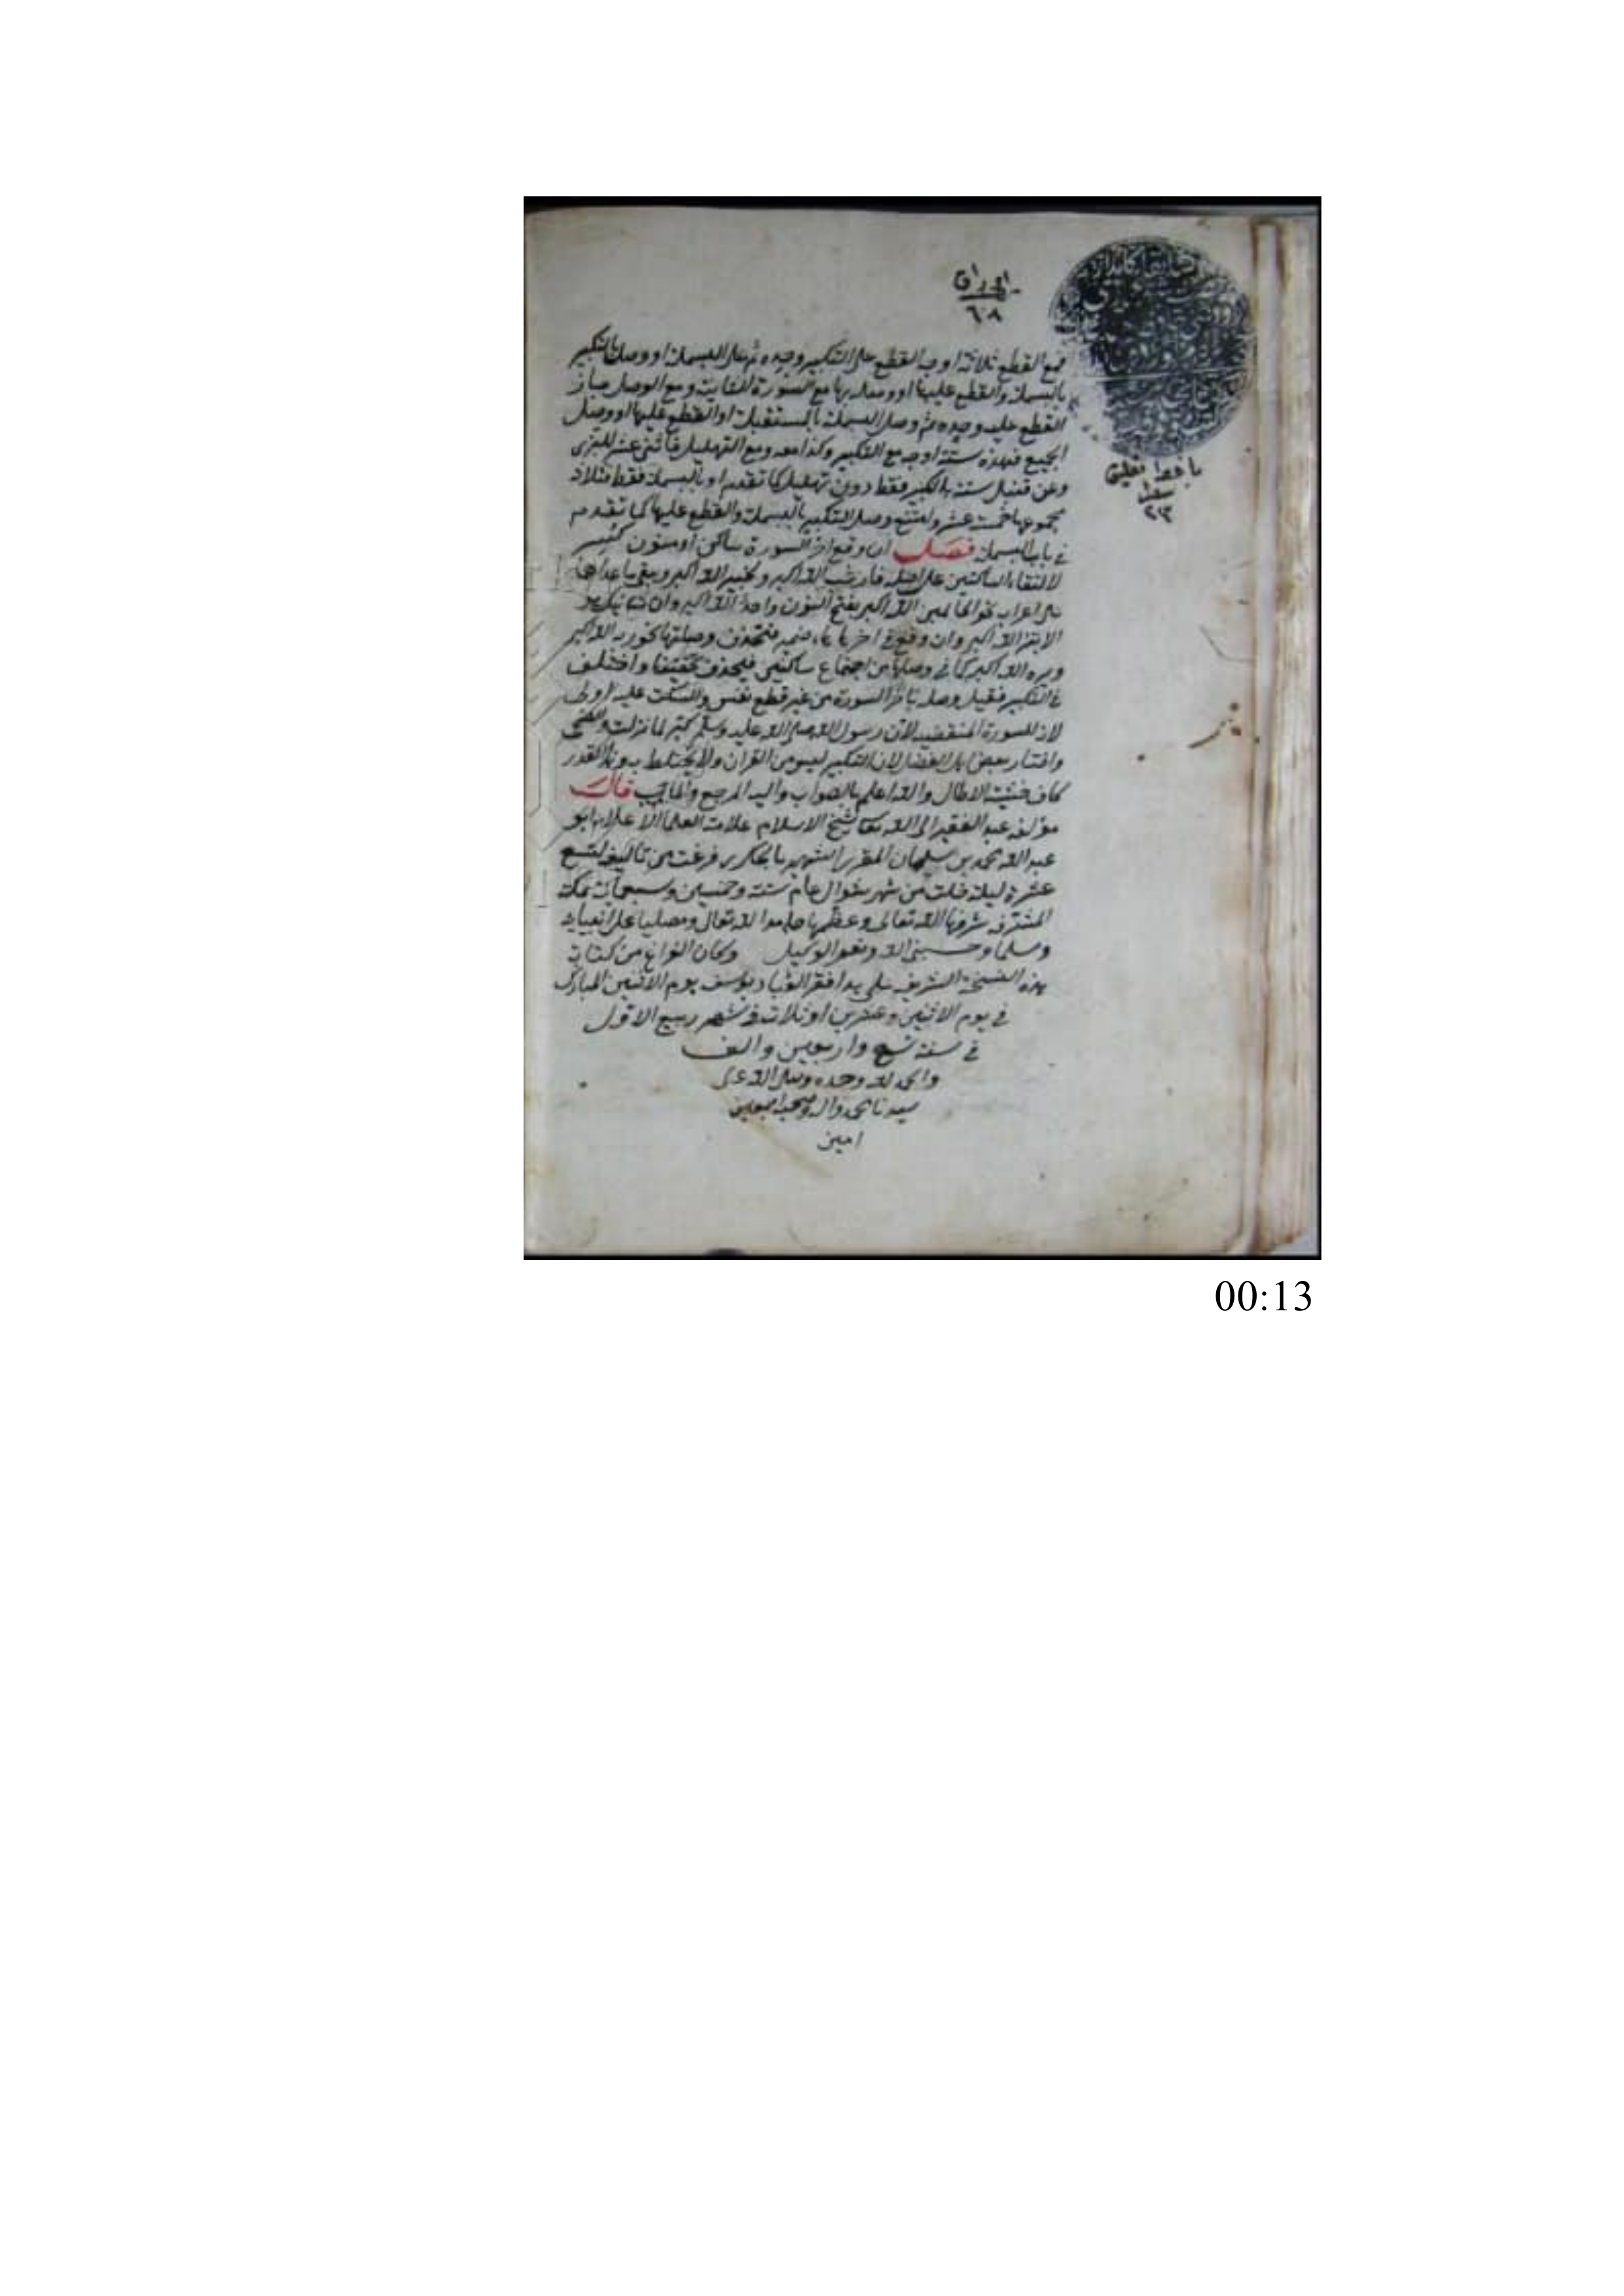 اوراق
٦٨
فمع القطع ثلاثة اوجه القطع على التكبير وحده ثم على البسملة او وصل التكبير
بالبسملة والقطع عليها او وصلها مع السورة الثانية ومع الوصل جاز
القطع عليه وحده ثم وصل البسملة بالمستقبلة او القطع عليها او وصل
الجميع فهذه ستة اوجه مع التكبير وكذا معه ومع التهليل فاثنى عشر للبزى
وعن قنبل ستة بالتكبير فقط دون تهليل كما تقدم او بالبسملة فقط فثلاث
مجموعها خمسة عشر ويمتنع وصل التكبير بالبسملة والقطع عليها كما تقدم
في باب البسملة فصل ان وقع اخر السورة ساكن او منون كسر
لالتقاء الساكنين على اصله فارغب الله اكبر ولخبير الله اكبر وبقي ما عداها
على اعراب نحو الحاكمين الله اكبر بفتح النون الله اكبر وان شانيك هو
الابتر الله اكبر وان وقع في اخرها هاء ضمير فتحذف وصلتها نحو ربه الله اكبر
ويره الله اكبر اجتماع ساكنين فيحذف تخفيفا واختلف
في التكبير فقيل وصله باخر السورة من غير قطع نفس والسكت عليه اولى
لانه للسورة المنقضية لان رسول الله صلى الله عليه وسلم كبر لما نزلت والضحى
واختار بعض اهل الفضل لان التكبير ليس من القران ولا يختلط به وهذا القدر
كاف خشية الاطال والله اعلم بالصواب واليه المرجع والمآب قال
مؤلفه عبد الفقير الى الله تعالى شيخ الاسلام علامة العلما الاعلام ابو
عبد الله محمد بن سليمان المقرى الشهير بالحكرى فرغت من تاليفه لتسع
عشرة ليلة خلت من شهر شوال عام ستة وخمسين وسبعمائة بمكة
المشرفة شرفها الله تعالى وعظمها حامدا لله تعالى ومصليا على انبيائه
ومسلما وحسبى الله ونعم الوكيل وكان الفراغ من كتابة
هذه النسخة الشريفة على يد افقر العباد يوسف يوم الاثنين المبارك
في يوم الاثنين وعشرين او ثلاث في شهر ربيع الاول
في سنة تسع واربعين والف
والحمد لله وحده وصلى الله على
سيدنا محمد واله وصحبه اجمعين
امين
٢٣
00:13